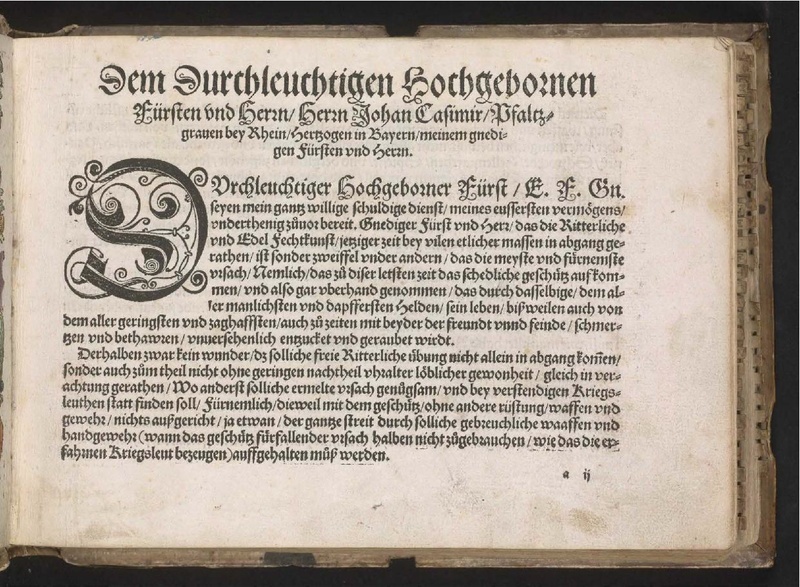 Dem Durchleuchtigen Hochgebornen
Fürsten vnd Herrn/ Herrn Johan Casimir/ Pfaltz⸗
grauen bey Rhein/ Hertzogen in Bayern/ meinem gnedi⸗
gen Fürsten vnd Herrn.
DVrchleuchtiger Hochgeborner Fürst / E. F. Gn.
seyen mein gantz willige schuldige dienst/ meines eussersten vermögens/
vnderthenig zůuor bereit. Gnediger Fürst vnd Herr/ das die Ritterliche
vnd Edel Fechtkunst/ jetziger zeit bey vilen etlicher massen in abgang ge⸗
rathen/ ist sonder zweiffel vnder andern/ das die meyste vnd fürnemste
vrsach/ Nemlich/ das zů diser letsten zeit das schedliche geschütz auffkom⸗
men/ vnd also gar vberhand genommen/ das durch dasselbige/ dem al⸗
ler manlichsten vnd dapffersten Helden/ sein leben/ bißweilen auch von
dem aller geringsten vnd zaghafften/ auch zů zeiten mit beyder der freundt vnnd feinde/ schmer⸗
tzen vnd bethawren/ vnuersehenlich entzucket vnd geraubet wirdt.
Derhalben zwar kein wunder/ dz solliche freie Ritterliche übung nicht allein in abgang kom̄en/
sonder auch zům theil nicht ohne geringen nachtheil vhralter löblicher gewonheit / gleich in ver⸗
achtung gerathen/ Wo anderst solliche ermelte vrsach genůgsam/ vnd bey verstendigen Kriegs⸗
leuthen statt finden soll/ Fürnemlich/ dieweil mit dem geschütz/ ohne andere rüstung/ waffen vnd
gewehr/ nichts außgericht/ ja etwan/ der gantze streit durch solliche gebreuchliche waaffen vnd
handgewehr (wann das geschütz fürfallender vrsach halben nicht zůgebrauchen/ wie das die er⸗
fahrnen Kriegsleut bezeugen) auffgehalten můß werden.
a ij